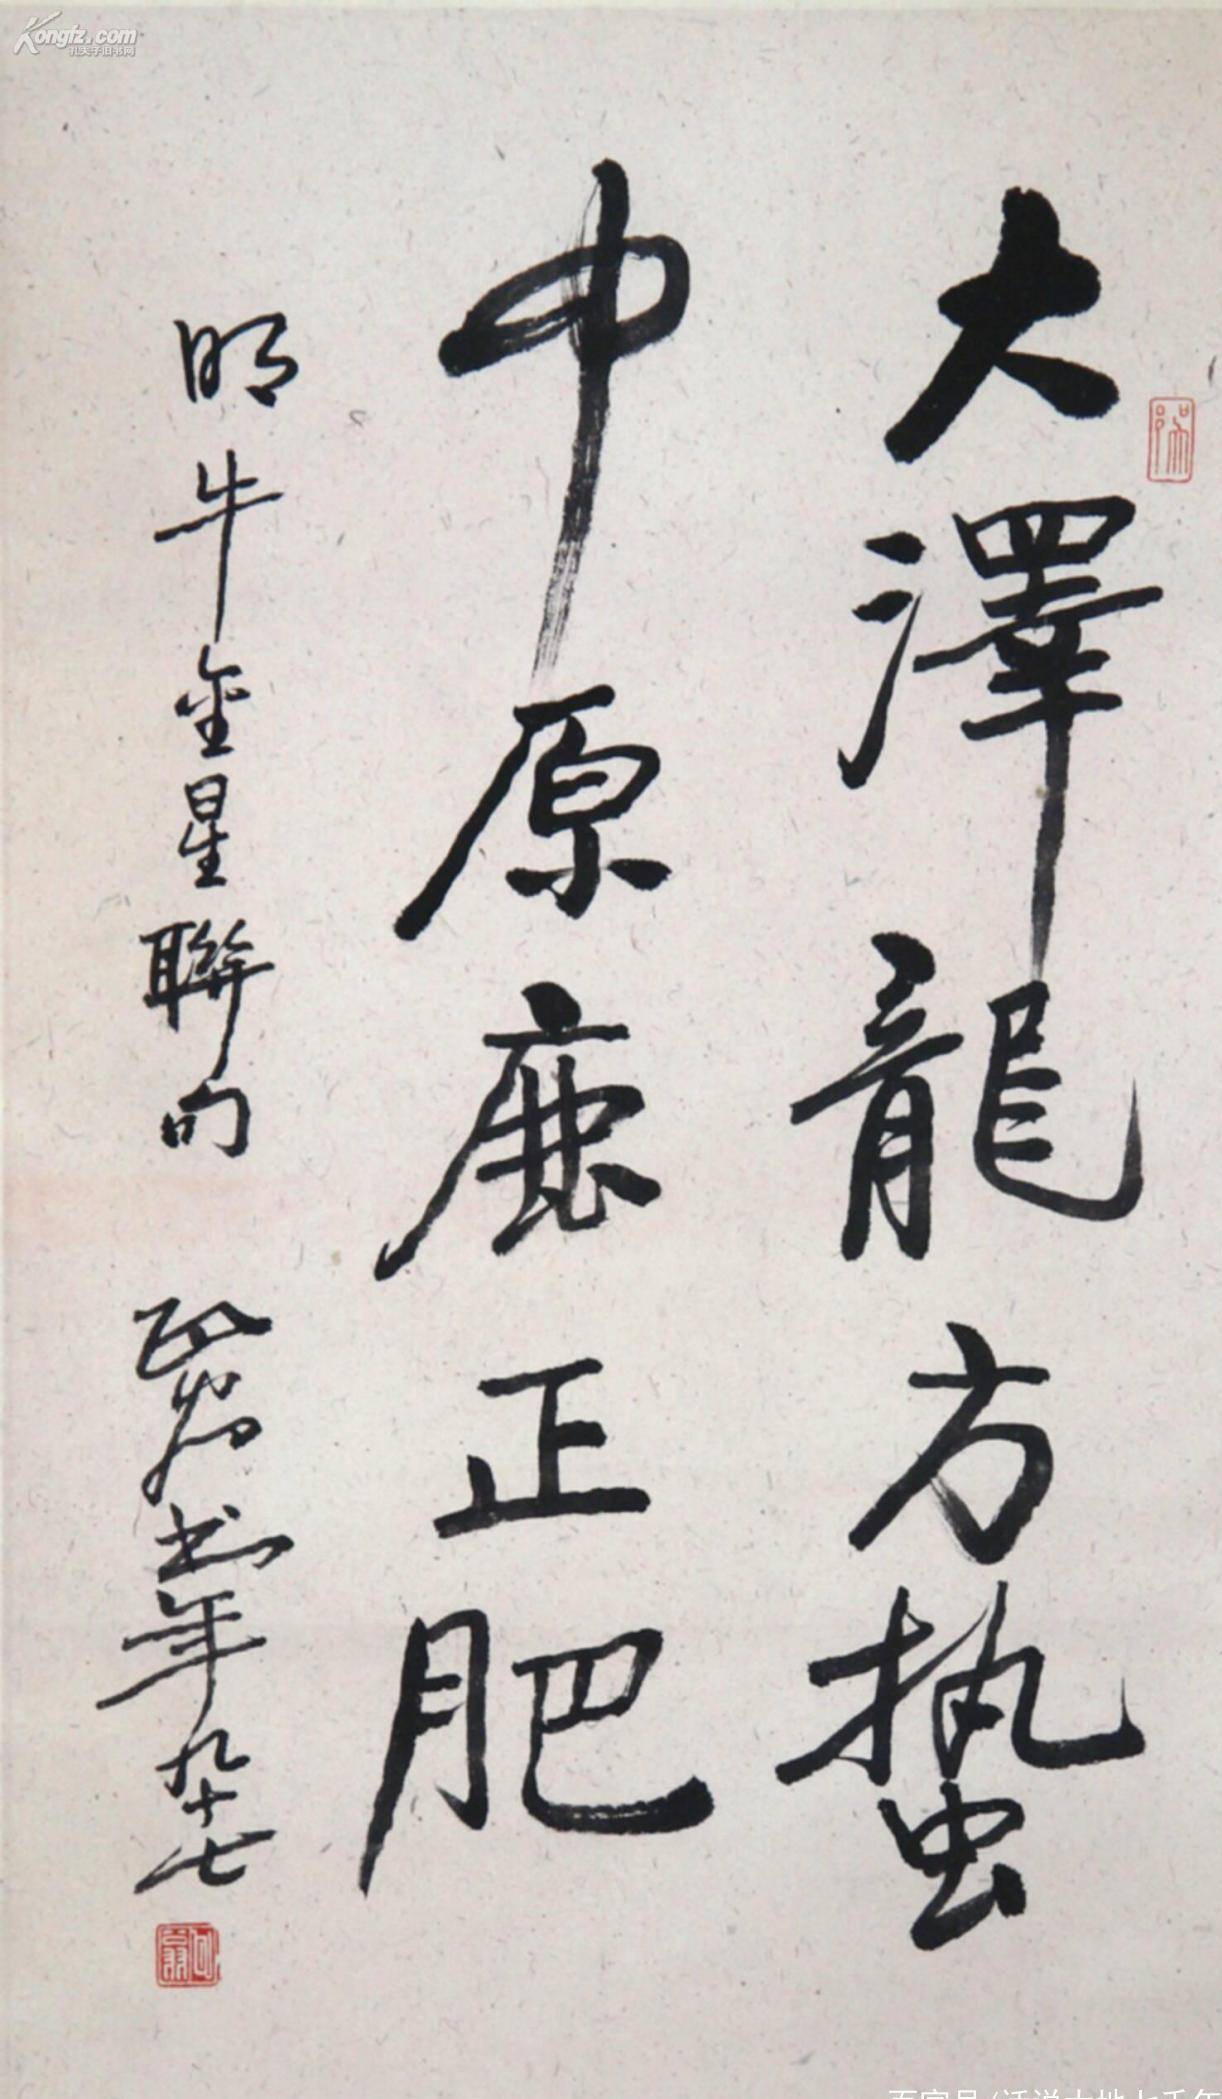 大澤龍方蟄
中原鹿正肥
明牛金星聯句
書年九十七
Kongfz.com
孔夫子旧书网